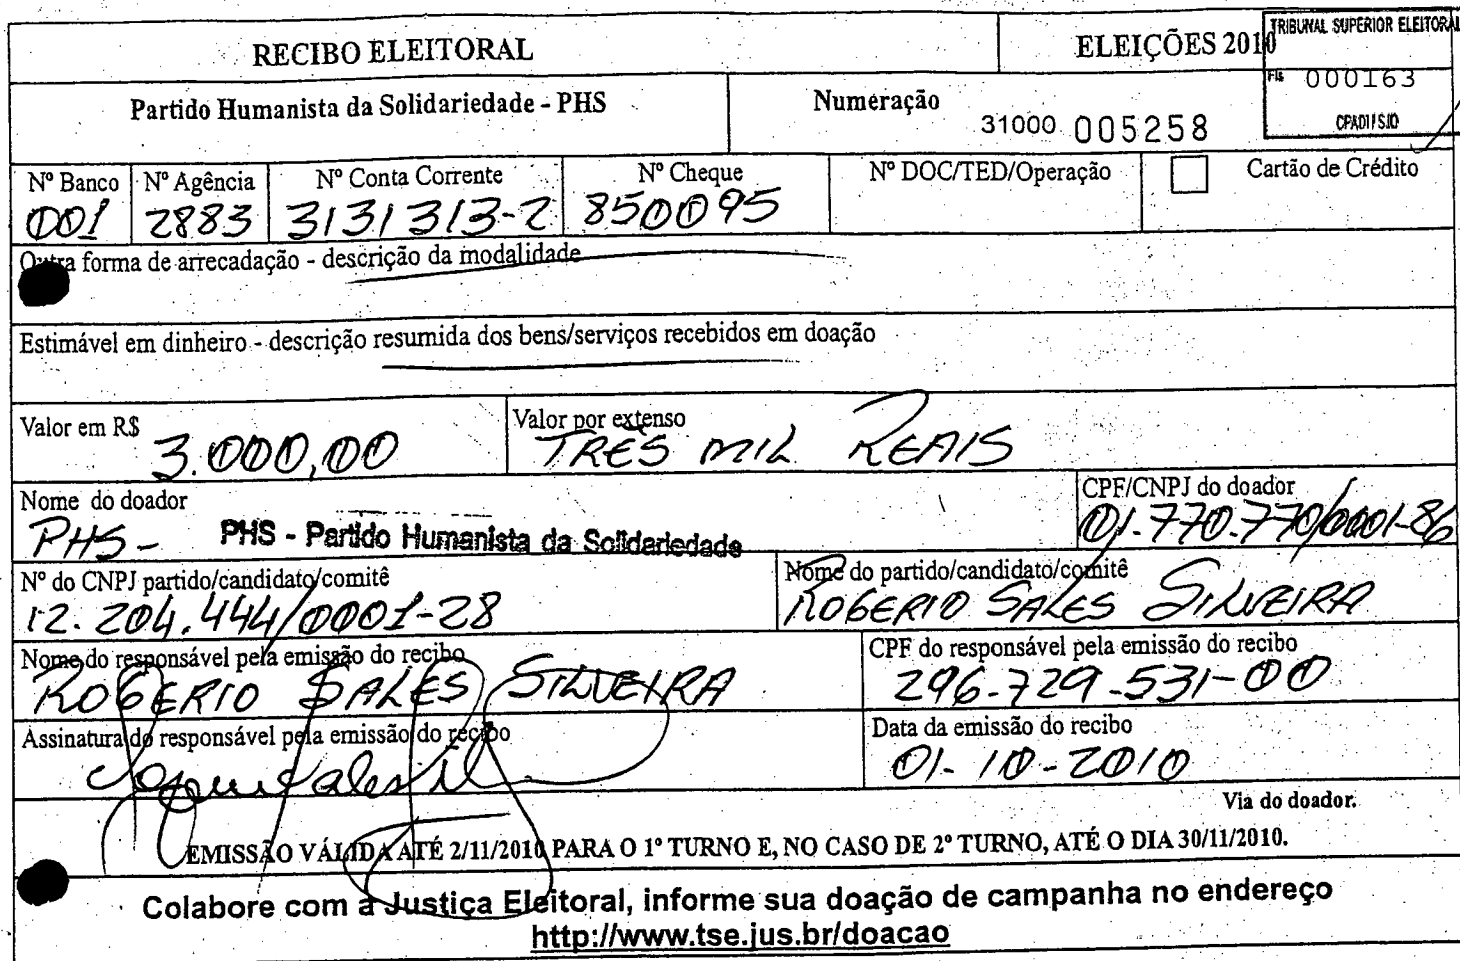 RECIBO ELEITORAL
ELEIÇÕES 2010
TRIBUNAL SUPERIOR ELEITORAL
Fls 000163
CPADI/SJD
Partido Humanista da Solidariedade - PHS
Numeração
31000 005258
Nº Banco Nº Agência Nº Conta Corrente Nº Cheque Nº DOC/TED/Operação Cartão de Crédito
001 2883 3131313-2 850095
Outra forma de arrecadação - descrição da modalidade
Estimável em dinheiro - descrição resumida dos bens/serviços recebidos em doação
Valor em R$ 3.000,00
Valor por extenso
TRÊS MIL REAIS
Nome do doador
PHS - PHS - Partido Humanista da Solidariedade
CPF/CNPJ do doador
01.770.770/0001-86
Nº do CNPJ partido/candidato/comitê
12.204.444/0001-28
Nome do partido/candidato/comitê
ROGERIO SALES SILVEIRA
Nome do responsável pela emissão do recibo
ROGERIO SALES SILVEIRA
CPF do responsável pela emissão do recibo
296.729.531-00
Assinatura do responsável pela emissão do recibo
Data da emissão do recibo
01-10-2010
Via do doador.
EMISSÃO VÁLIDA ATÉ 2/11/2010 PARA O 1º TURNO E, NO CASO DE 2º TURNO, ATÉ O DIA 30/11/2010.
Colabore com a Justiça Eleitoral, informe sua doação de campanha no endereço
http://www.tse.jus.br/doacao